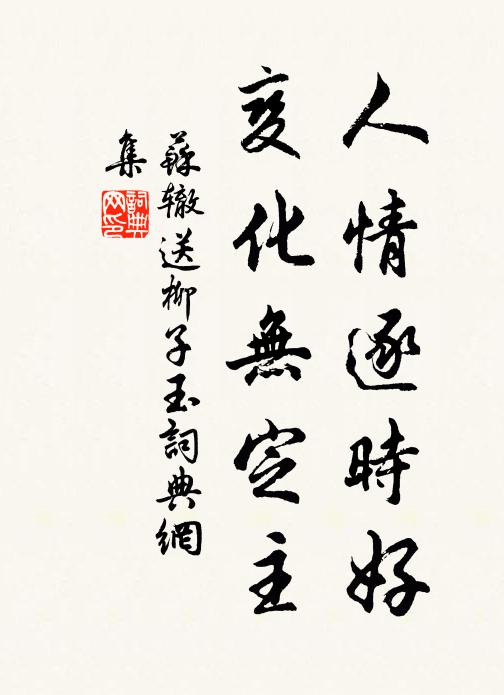 人情逐時好
变化無定主
蘇辙送柳子玉詞典網
集
詞典網印